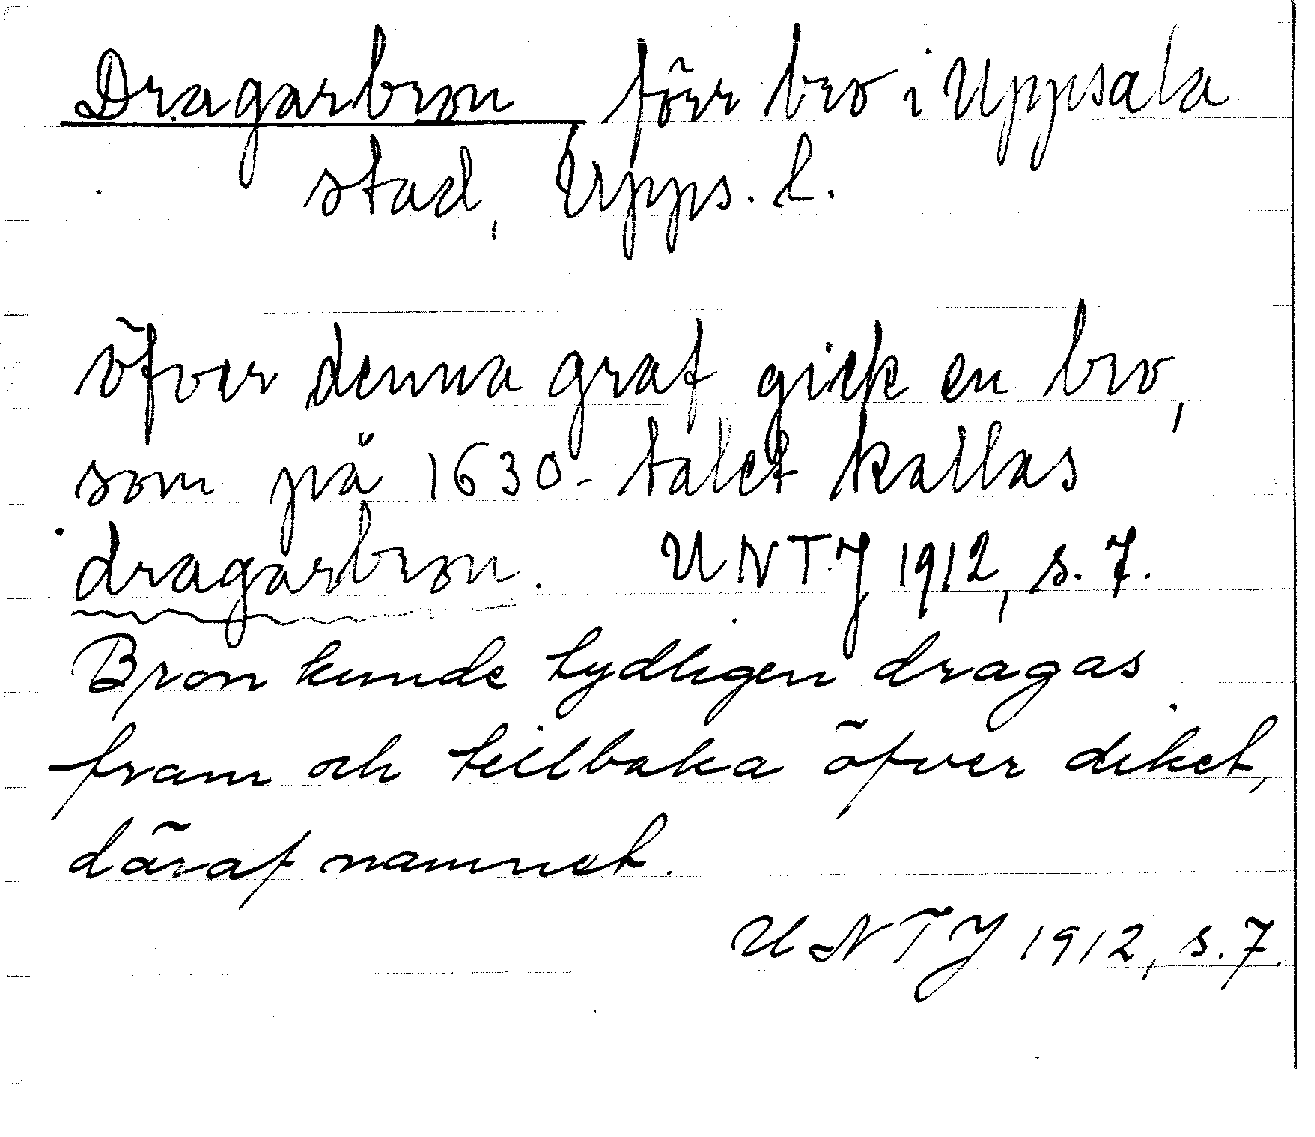 Dragarbron förr bro i Uppsala
stad, Upps. l.
öfver denna graf gick en bro,
som på 1630-talet kallas
dragarbron. UNTJ 1912, s. 7.
Bron kunde tydligen dragas
fram och tillbaka öfver diket,
däraf namnet.
UNTJ 1912, s. 7.